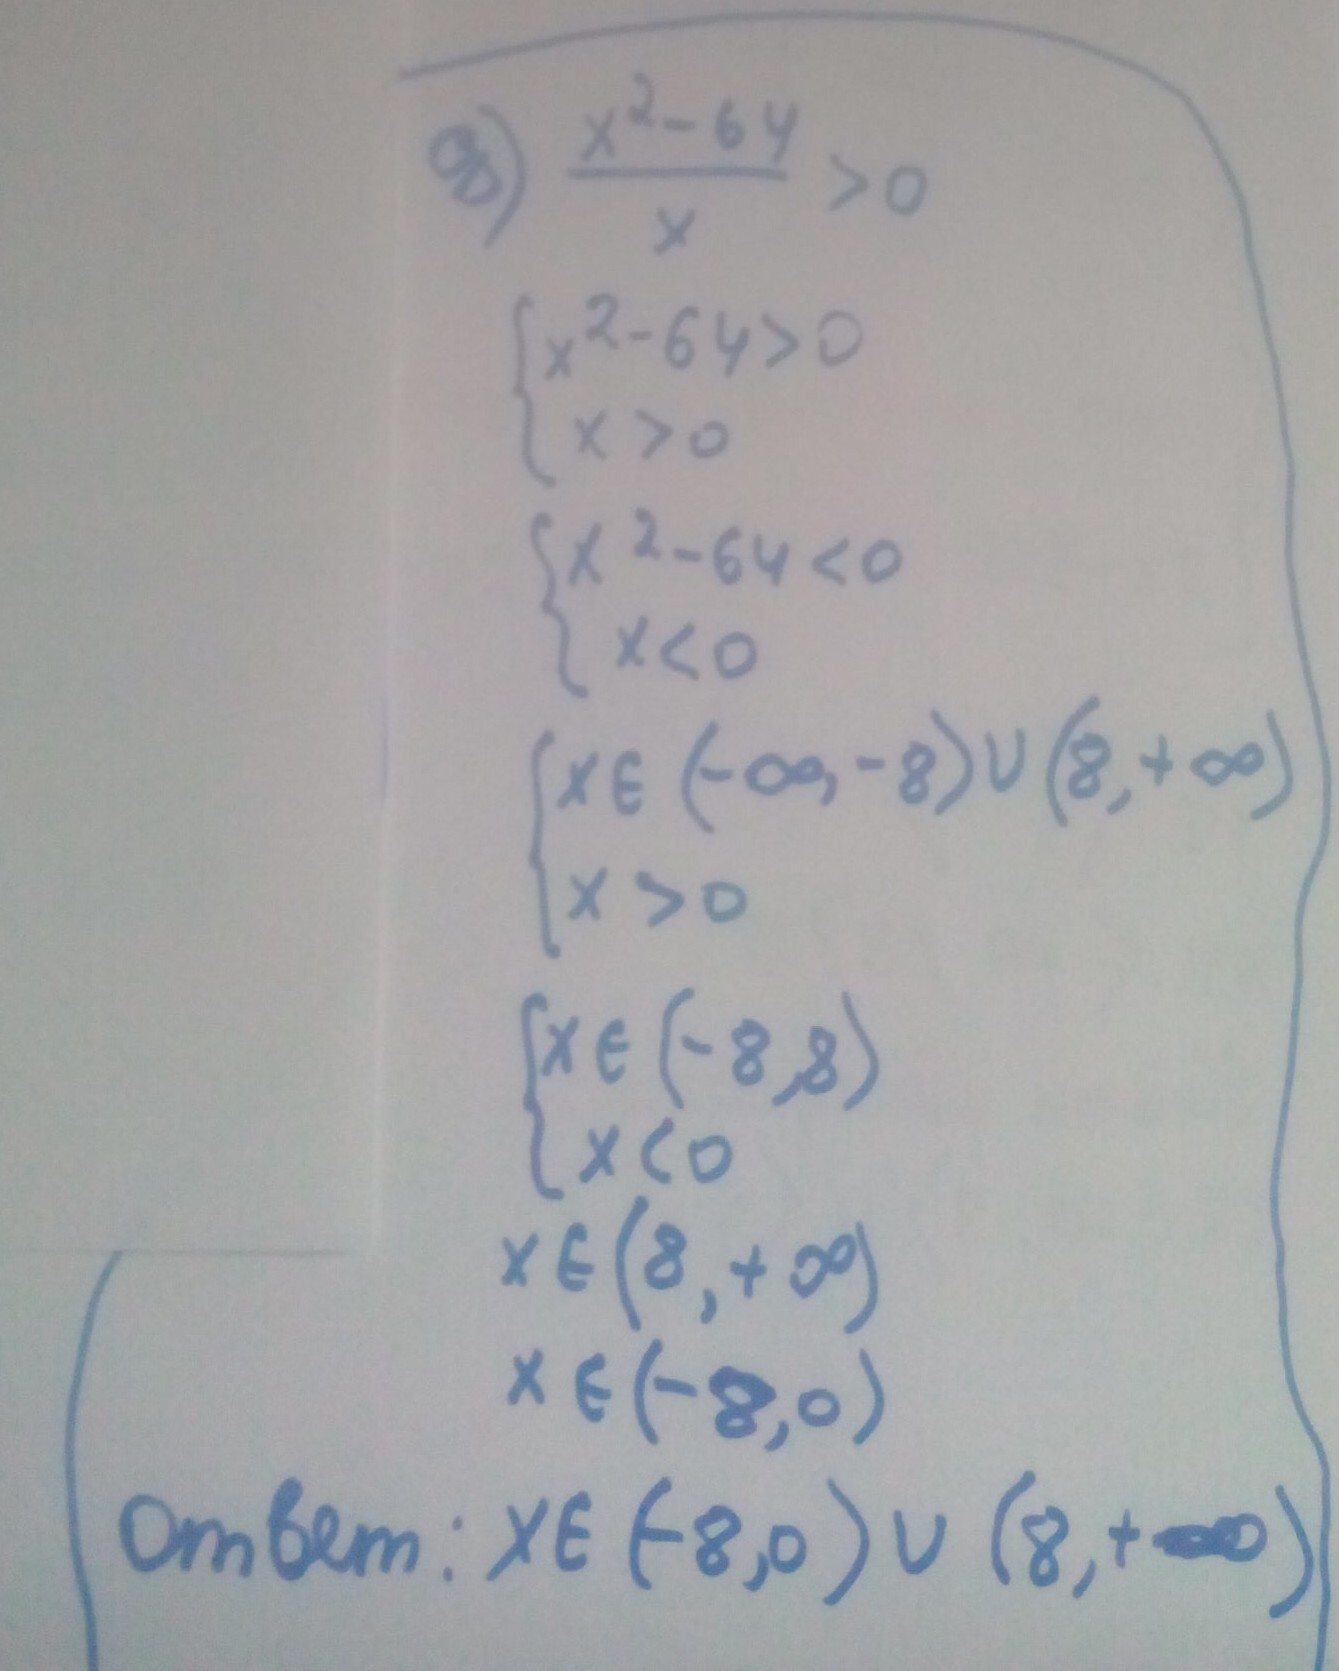 д) x²-64/x >0
{x²-64>0
x>0
{x²-64<0
x<0
{x∈(-∞,-8)∪(8,+∞)
x>0
{x∈(-8,8)
x<0
x∈(8,+∞)
x∈(-8,0)
Ответ: x∈(-8,0)∪(8,+∞)